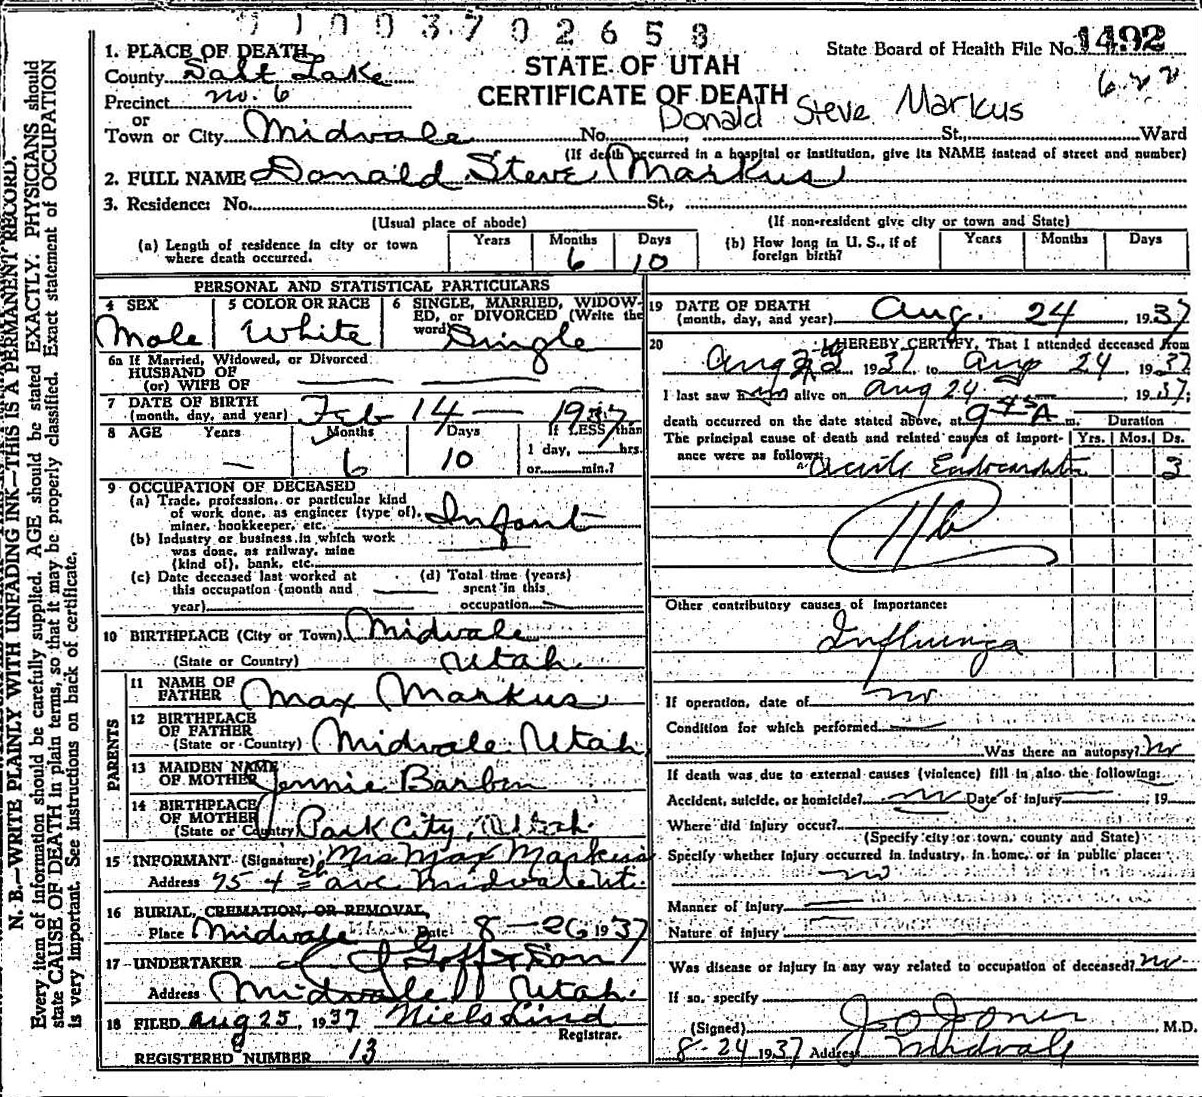 1003702658
1. PLACE OF DEATH
County Salt Lake
Precinct no. 6
or
Town or City Midvale No. St. Ward
STATE OF UTAH
CERTIFICATE OF DEATH
State Board of Health File No. 1492
Donald Steve Markus
(If death occurred in a hospital or institution, give its NAME instead of street and number)
2. FULL NAME Donald Steve Markus
3. Residence: No. St.,
(Usual place of abode) (If non-resident give city or town and State)
(a) Length of residence in city or town where death occurred. Years Months 6 Days 10
(b) How long in U. S., if of foreign birth? Years Months Days
PERSONAL AND STATISTICAL PARTICULARS
4 SEX Male
5 COLOR OR RACE White
6 SINGLE, MARRIED, WIDOWED, or DIVORCED (Write the word) Single
6a If Married, Widowed, or Divorced
HUSBAND OF
(or) WIFE OF
7 DATE OF BIRTH
(month, day, and year) Feb 14 — 1937
8 AGE Years — Months 6 Days 10 If LESS than 1 day, hrs. or min.?
9 OCCUPATION OF DECEASED
(a) Trade, profession, or particular kind
of work done, as engineer (type of), Infant
miner, bookkeeper, etc.
(b) Industry or business in which work
was done, as railway, mine
(kind of), bank, etc.
(c) Date deceased last worked at
this occupation (month and
year)
(d) Total time (years)
spent in this
occupation
10 BIRTHPLACE (City or Town) Midvale
(State or Country) Utah.
PARENTS
11 NAME OF
FATHER Max Markus
12 BIRTHPLACE
OF FATHER
(State or Country) Midvale Utah
13 MAIDEN NAME
OF MOTHER Jennie Barben
14 BIRTHPLACE
OF MOTHER
(State or Country) Park City, Utah.
15 INFORMANT (Signature) Mrs Max Markus
Address 75 4th ave Midvale Ut.
16 BURIAL, CREMATION, OR REMOVAL,
Place Midvale Date 8 — 26 1937
17 UNDERTAKER Goff & Son
Address Midvale Utah.
18 FILED Aug 25, 1937 Niels Lind
Registrar.
REGISTERED NUMBER 13
19 DATE OF DEATH
(month, day, and year) Aug. 24 1937
20 I HEREBY CERTIFY, That I attended deceased from
Aug 1937 to Aug 24 1937
I last saw him alive on Aug 24 1937;
death occurred on the date stated above, at 9 45 A m. Duration
The principal cause of death and related causes of importance were as follows: Yrs. Mos. Ds.
Acute Endocarditis 3
Other contributory causes of importance:
Influenza
If operation, date of no
Condition for which performed
Was there an autopsy? No
If death was due to external causes (violence) fill in also the following:
Accident, suicide, or homicide? no Date of injury 19
Where did injury occur?
(Specify city or town, county and State)
Specify whether injury occurred in industry, in home, or in public place:
no
Manner of injury
Nature of injury
Was disease or injury in any way related to occupation of deceased? no
If so, specify
(Signed) J O Jones, M.D.
8-24 1937 Address Midvale
N. B.—WRITE PLAINLY WITH UNFADING INK—THIS IS A PERMANENT RECORD.
Every item of information should be carefully supplied. AGE should be stated EXACTLY. PHYSICIANS should
state CAUSE OF DEATH in plain terms, so that it may be properly classified. Exact statement of OCCUPATION
is very important. See instructions on back of certificate.